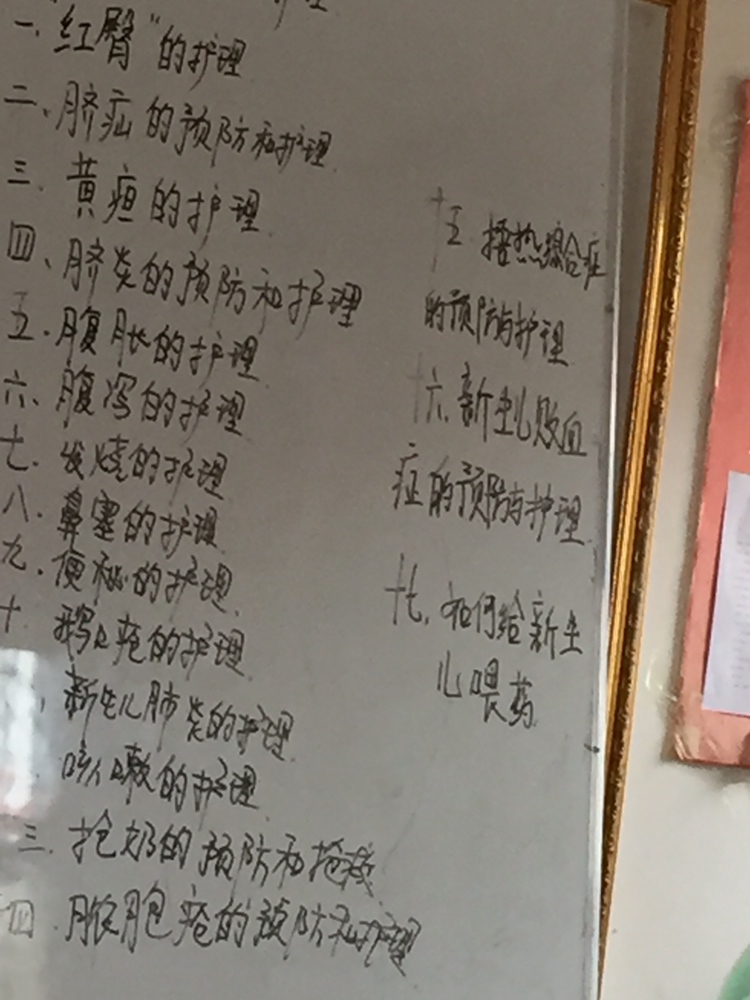 护理
一、"红臀"的护理
二、脐疝的预防和护理
三、黄疸的护理
四、脐炎的预防和护理
五、腹胀的护理
六、腹泻的护理
七、发烧的护理
八、鼻塞的护理
九、便秘的护理
十 鹅口疮的护理
、新生儿肺炎的护理
咳嗽的护理
三、抢奶的预防和抢救
四、脓胞疮的预防和护理
十五 捂热综合症
的预防与护理
十六、新生儿败血
症的预防与护理
十七、如何给新生
儿喂药